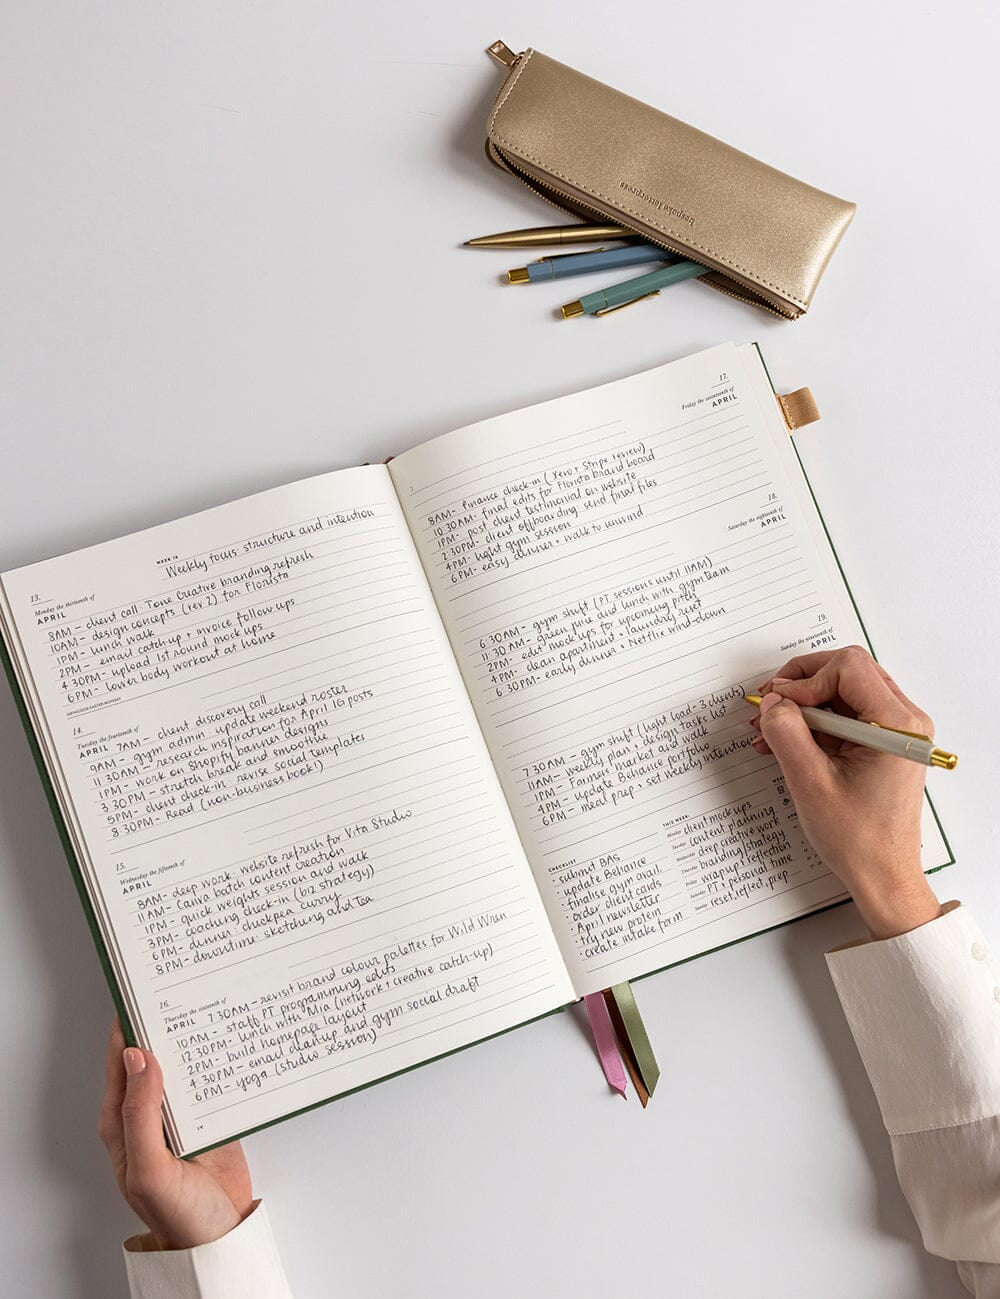 bespoke letterpress
WEEK 16
Weekly focus: structure and intention
13.
Monday the thirteenth of
APRIL
8AM - client call: Tone Creative branding refresh
10AM - design concepts (rev 2) for Florista
1PM - lunch walk
2PM - email catch-up + invoice follow ups
4:30PM - upload 1st round mock ups
6PM - lower body workout at home
ORTHODOX EASTER MONDAY
14.
Tuesday the fourteenth of
APRIL
7AM - client discovery call
9AM - gym admin: update weekend roster
11:30AM - research inspiration for April 1G posts
1PM - work on Shopify banner designs
3:30PM - stretch break and smoothie
5PM - client check-in: revise social templates
8:30PM - Read (non-business book!)
15.
Wednesday the fifteenth of
APRIL
8AM - deep work: website refresh for Vita Studio
11AM - Canva batch content creation
1PM - quick weights session and walk
3PM - coaching check-in (biz strategy)
6PM - dinner: chickpea curry
8PM - downtime: sketching and tea
16.
Thursday the sixteenth of
APRIL
7:30AM - revisit brand colour palettes for Wild Wren
10AM - staff PT programming edits
12:30PM - lunch with Mia (network + creative catch-up)
2PM - build homepage layout
4:30PM - email cleanup and gym social draft
6PM - yoga (studio session)
17.
Friday the seventeenth of
APRIL
8AM - finance check-in (Xero + Stripe review)
10:30AM - final edits for Florista brand board
1PM - post client testimonial on website
2:30PM - client offboarding: send final files
4PM - light gym session
6PM - easy dinner + walk to unwind
18.
Saturday the eighteenth of
APRIL
6:30AM - gym shift (PT sessions until 11AM)
11:30AM - green juice and lunch with gym team
2PM - edit mock ups for upcoming pitch
4PM - clean apartment + laundry reset
6:30PM - early dinner + Netflix wind-down
19.
Sunday the nineteenth of
APRIL
7:30AM - gym shift (light load - 3 clients)
11AM - weekly plan + design tasks list
1PM - Farmers market and walk
4PM - update Behance portfolio
6PM - meal prep + set weekly intention
CHECKLIST
· submit BAS
· update Behance
· finalise gym avail.
· order client cards
· April newsletter
· try new protein
· create intake form
THIS WEEK:
Monday client mock ups
Tuesday content planning
Wednesday deep creative work
Thursday branding/strategy
Friday wrap up / reflection
Saturday PT + personal time
Sunday reset, reflect, prep